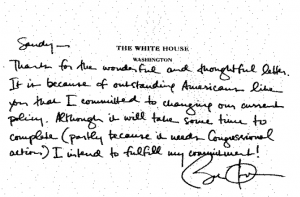 Sandy —
THE WHITE HOUSE
WASHINGTON
Thanks for the wonderful and thoughtful letter.
It is because of outstanding Americans like
you that I committed to changing our current
policy. Although it will take some time to
complete (partly because it needs Congressional
action) I intend to fulfill my commitment!